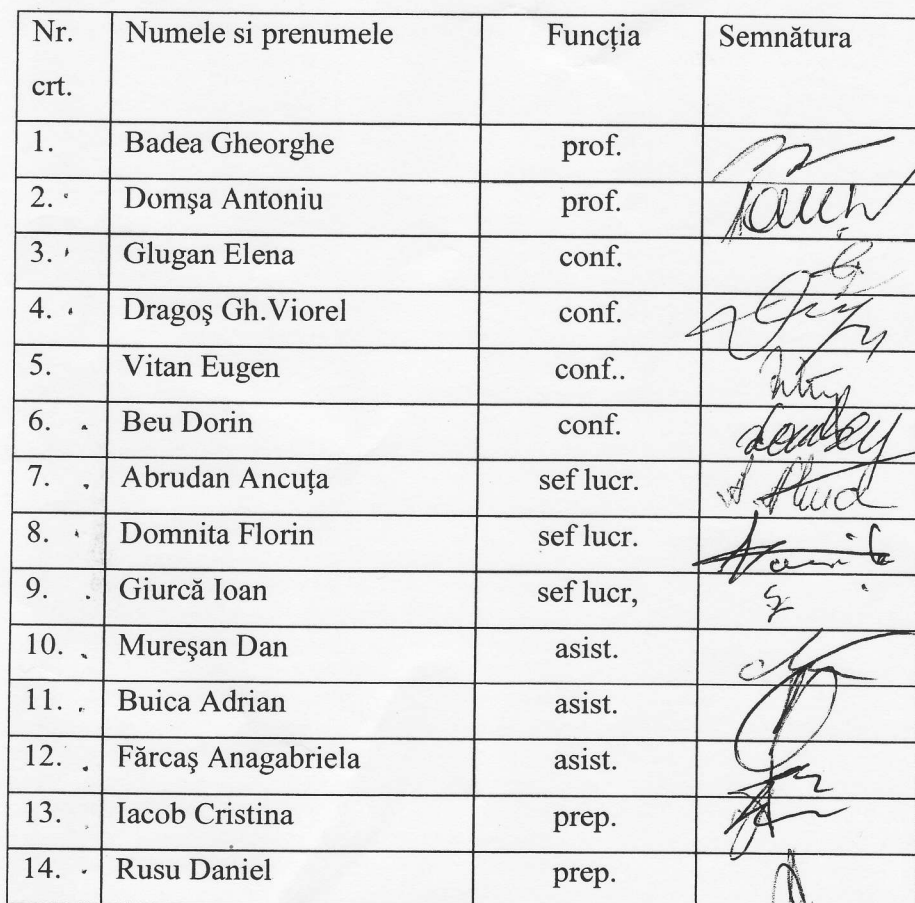 Nr. crt. Numele si prenumele Funcția Semnătura
1. Badea Gheorghe prof.
2. Domşa Antoniu prof.
3. Glugan Elena conf.
4. Dragoş Gh.Viorel conf.
5. Vitan Eugen conf..
6. Beu Dorin conf.
7. Abrudan Ancuța sef lucr.
8. Domnita Florin sef lucr.
9. Giurcă Ioan sef lucr,
10. Mureşan Dan asist.
11. Buica Adrian asist.
12. Fărcaş Anagabriela asist.
13. Iacob Cristina prep.
14. Rusu Daniel prep.